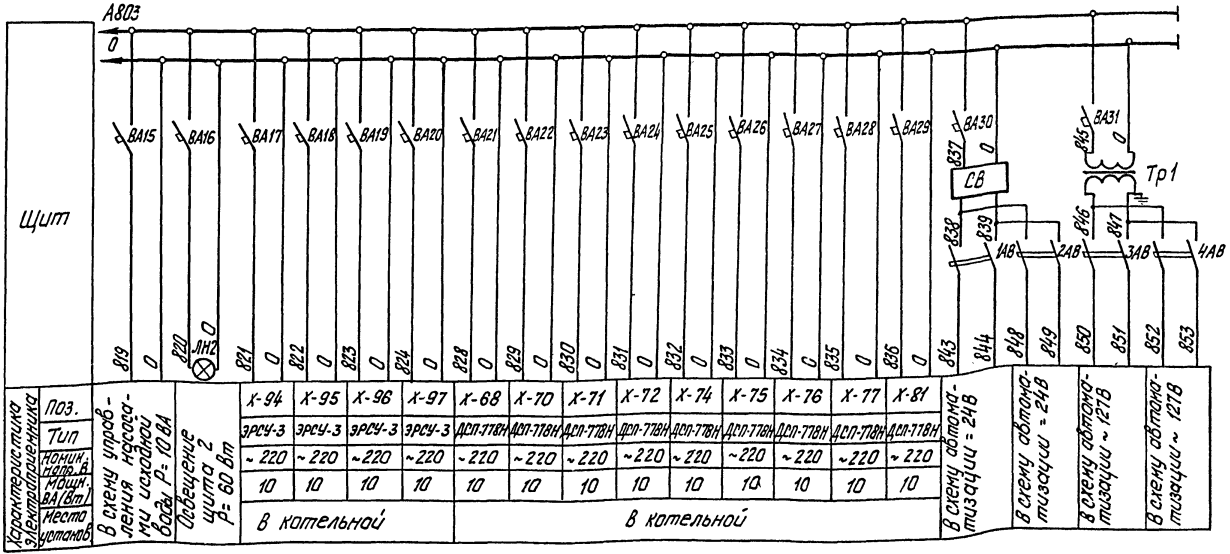 А803
0
ВА15 ВА16 ВА17 ВА18 ВА19 ВА20 ВА21 ВА22 ВА23 ВА24 ВА25 ВА26 ВА27 ВА28 ВА29 ВА30 ВА31
845 0
837 0
СВ
Тр1
Щит
838 839 846 847
1АВ 2АВ 3АВ 4АВ
ЛН2
819 0 820 0 821 0 822 0 823 0 824 0 828 0 829 0 830 0 831 0 832 0 833 0 834 0 835 0 836 0 843 844 848 849 850 851 852 853
Характеристика
электроприемника
Поз.
Тип
Номин.
напр. В
Мощн.
ВА(Вт)
Место
установ.
В схему управ-
ления насоса-
ми исходной
воды Р=10 ВА
Освещение
щита 2
Р=60 Вт
Х-94 Х-95 Х-96 Х-97 Х-68 Х-70 Х-71 Х-72 Х-74 Х-75 Х-76 Х-77 Х-81
ЭРСУ-3 ЭРСУ-3 ЭРСУ-3 ЭРСУ-3 ДСП-778Н ДСП-778Н ДСП-778Н ДСП-778Н ДСП-778Н ДСП-778Н ДСП-778Н ДСП-778Н ДСП-778Н
~220 ~220 ~220 ~220 ~220 ~220 ~220 ~220 ~220 ~220 ~220 ~220 ~220
10 10 10 10 10 10 10 10 10 10 10 10 10
В котельной
В котельной
В схему автома-
тизации =24В
В схему автома-
тизации =24В
В схему автома-
тизации ~127В
В схему автома-
тизации ~127В